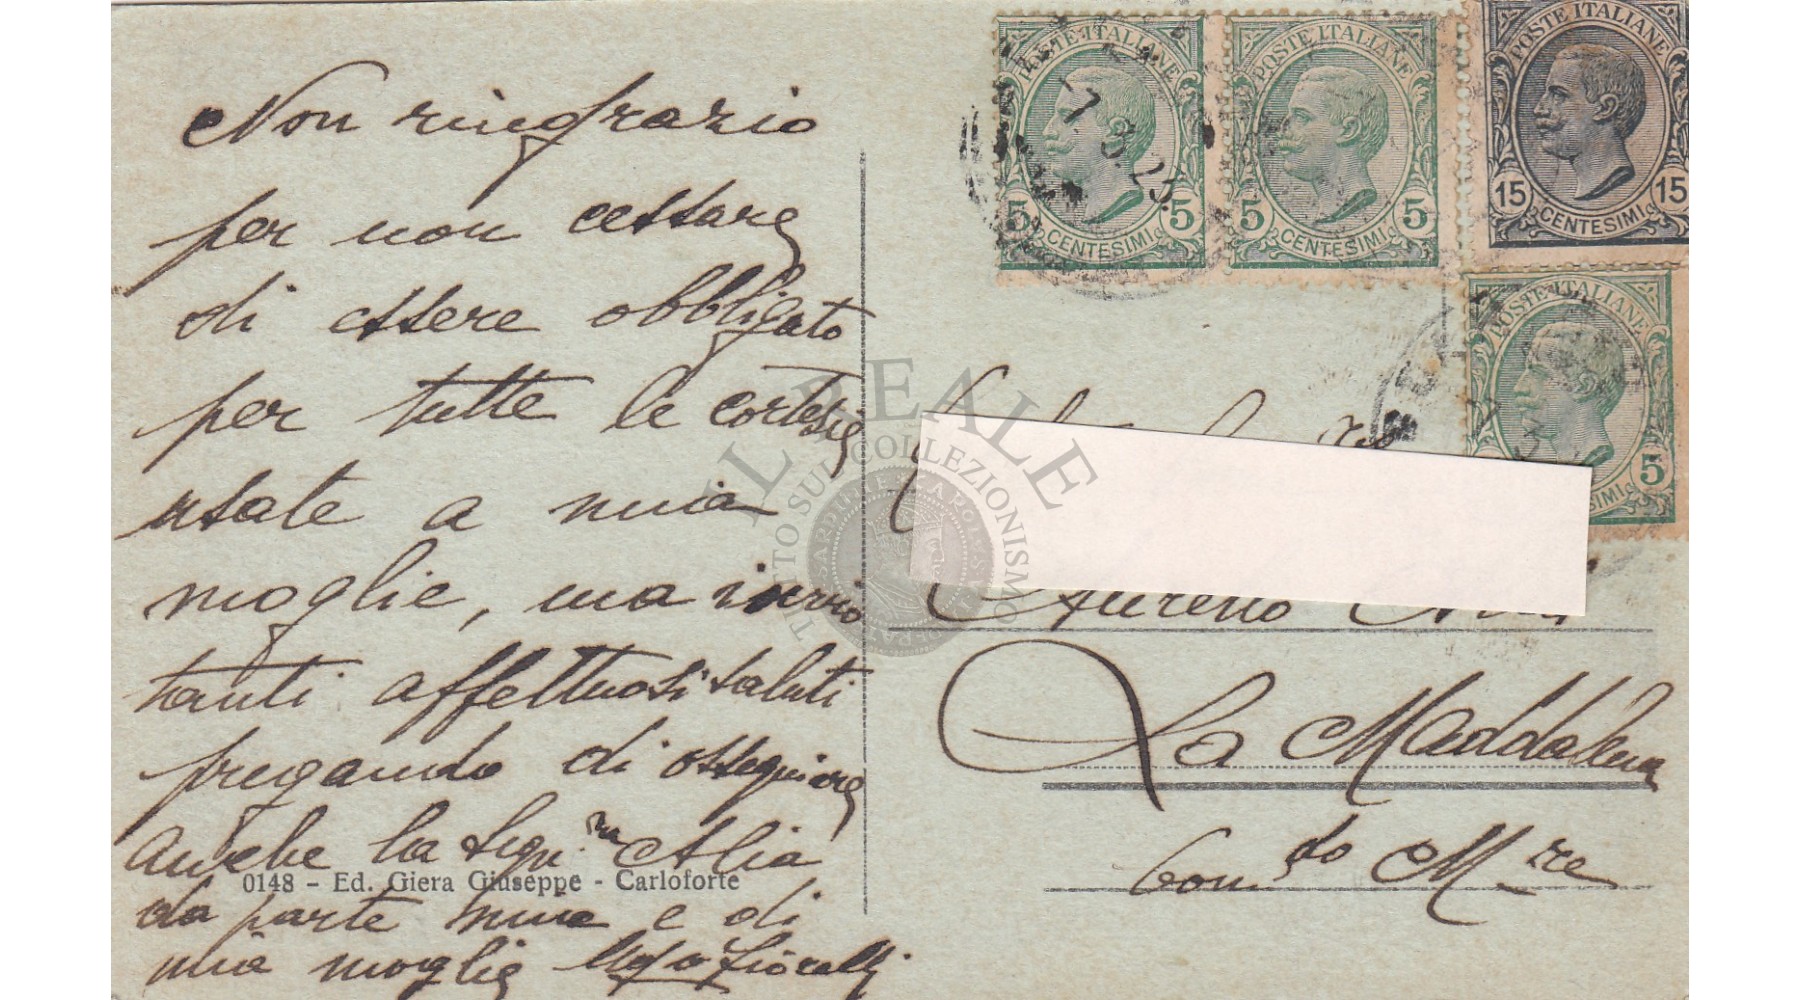 Non ringrazio
per non cessare
di essere obbligato
per tutte le cortesie
usate a mia
moglie, ma invio
tanti affettuosi saluti
pregando di ossequiare
anche la Sign.ra Clelia
da parte mia e di
mia moglie Fiorelli
0148 - Ed. Giera Giuseppe - Carloforte
POSTE ITALIANE
5 CENTESIMI 5
7.9.25.
POSTE ITALIANE
5 CENTESIMI 5
POSTE ITALIANE
15 CENTESIMI 15
POSTE ITALIANE
CENTESIMI 5
Aurelio
La Maddalena
Com.do M.re
IL REALE
TUTTO SUL COLLEZIONISMO